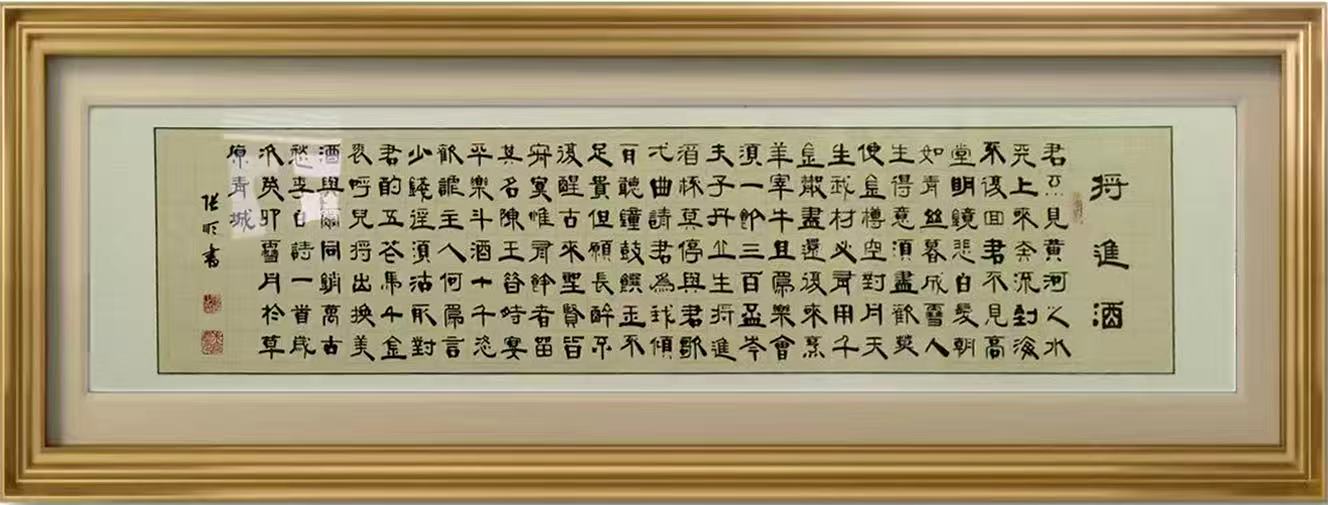 将進酒
君不見黄河之水
天上來奔流到海
不復回君不見高
堂明鏡悲白髮朝
如青丝暮成雪人
生得意須盡歡莫
使金樽空對月天
生我材必有用千
金散盡還復來烹
羊宰牛且爲樂會
須一飲三百盃岑
夫子丹丘生将進
酒杯莫停與君歌
弌曲請君為我傾
耳聽鐘鼓饌玉不
足貴但願長醉不
復醒古來聖賢皆
寂寞惟有飲者留
其名陳王昔時宴
平樂斗酒十千恣
歡謔主人何爲言
少錢逕須沽取對
君酌五花馬千金
裘呼兒将出換美
酒與爾同銷萬古
愁李白詩一首歲
次癸卯雪月於草
原青城
張書